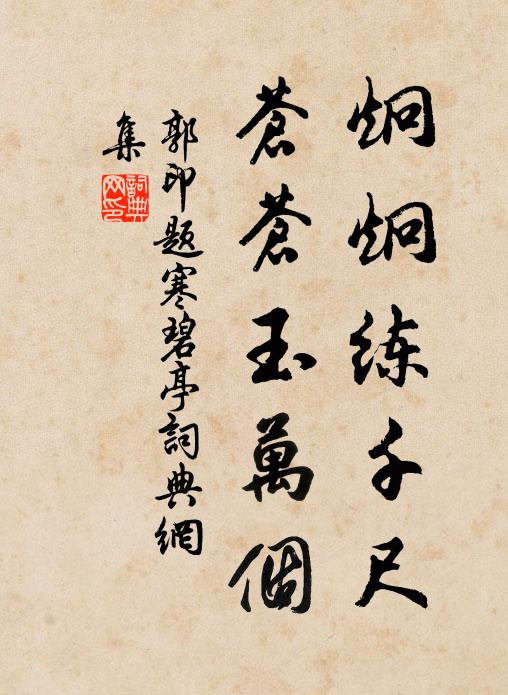 炯炯练千尺
蒼蒼玉萬個
郭印題寒碧亭詞典網
集
詞典
网印